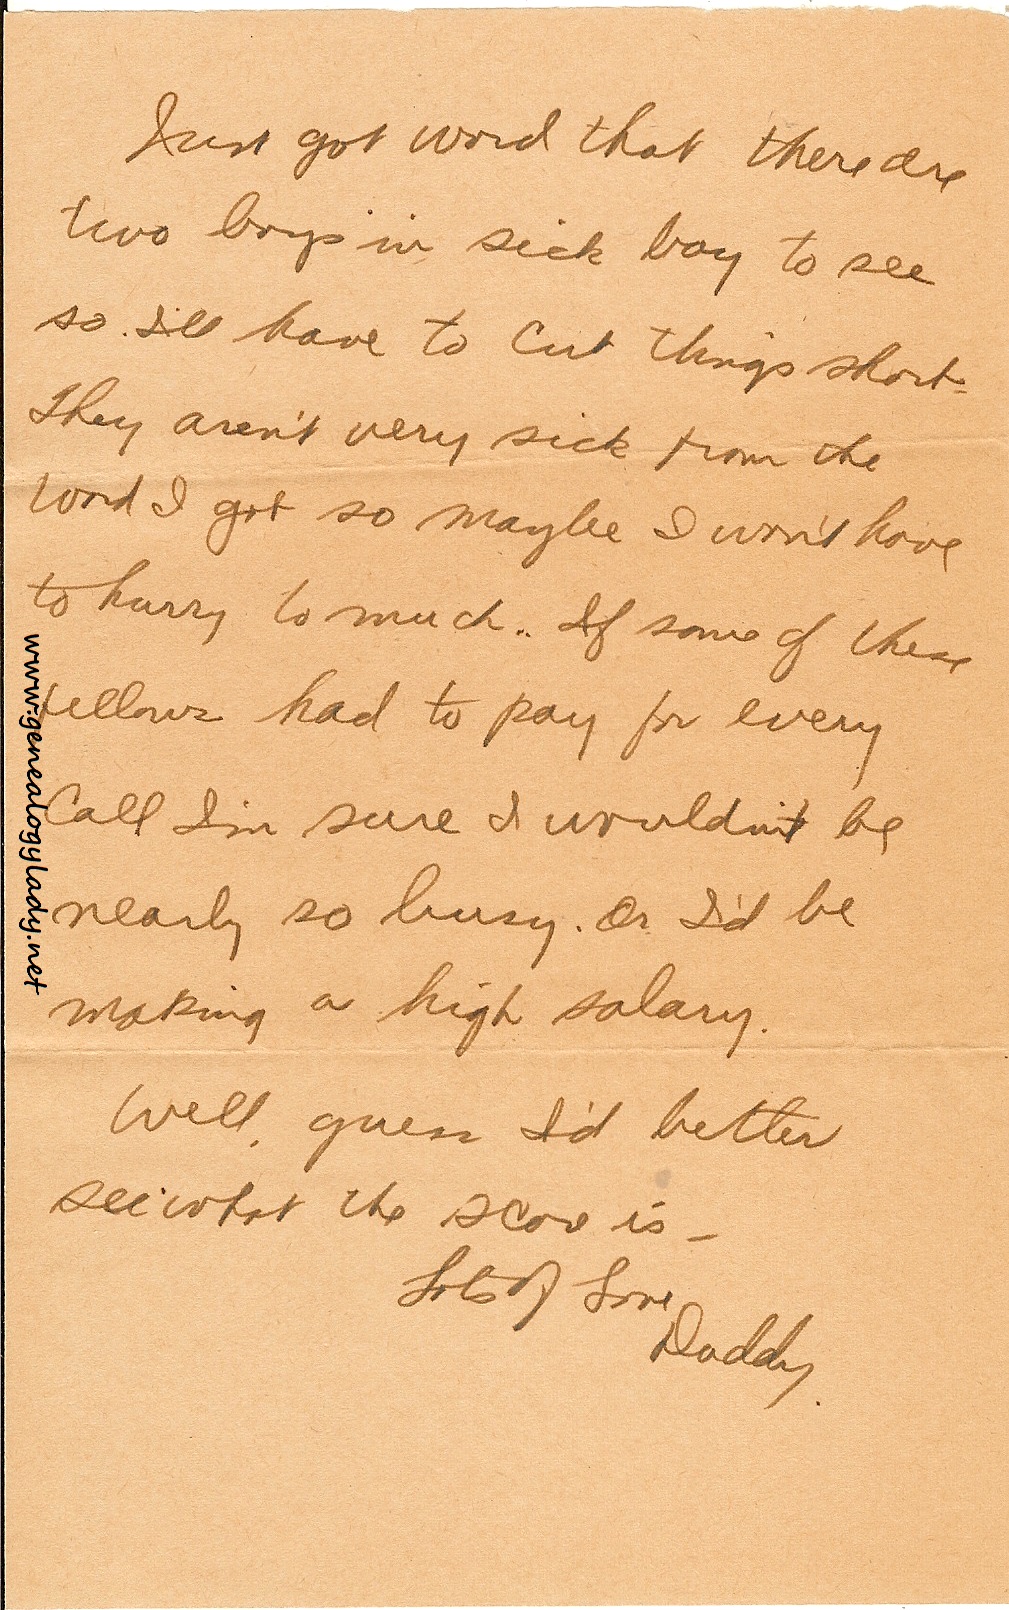 Just got word that there are
two boys in sick bay to see
so I'll have to cut things short-
They aren't very sick from the
word I got so maybe I won't have
to hurry to much.. If some of these
fellows had to pay for every
Call I'm sure I wouldn't be
nearly so busy. Or I'd be
making a high salary.
Well, guess I'd better
see what the score is –
Lots of Love,
Daddy.
www.genealogylady.net